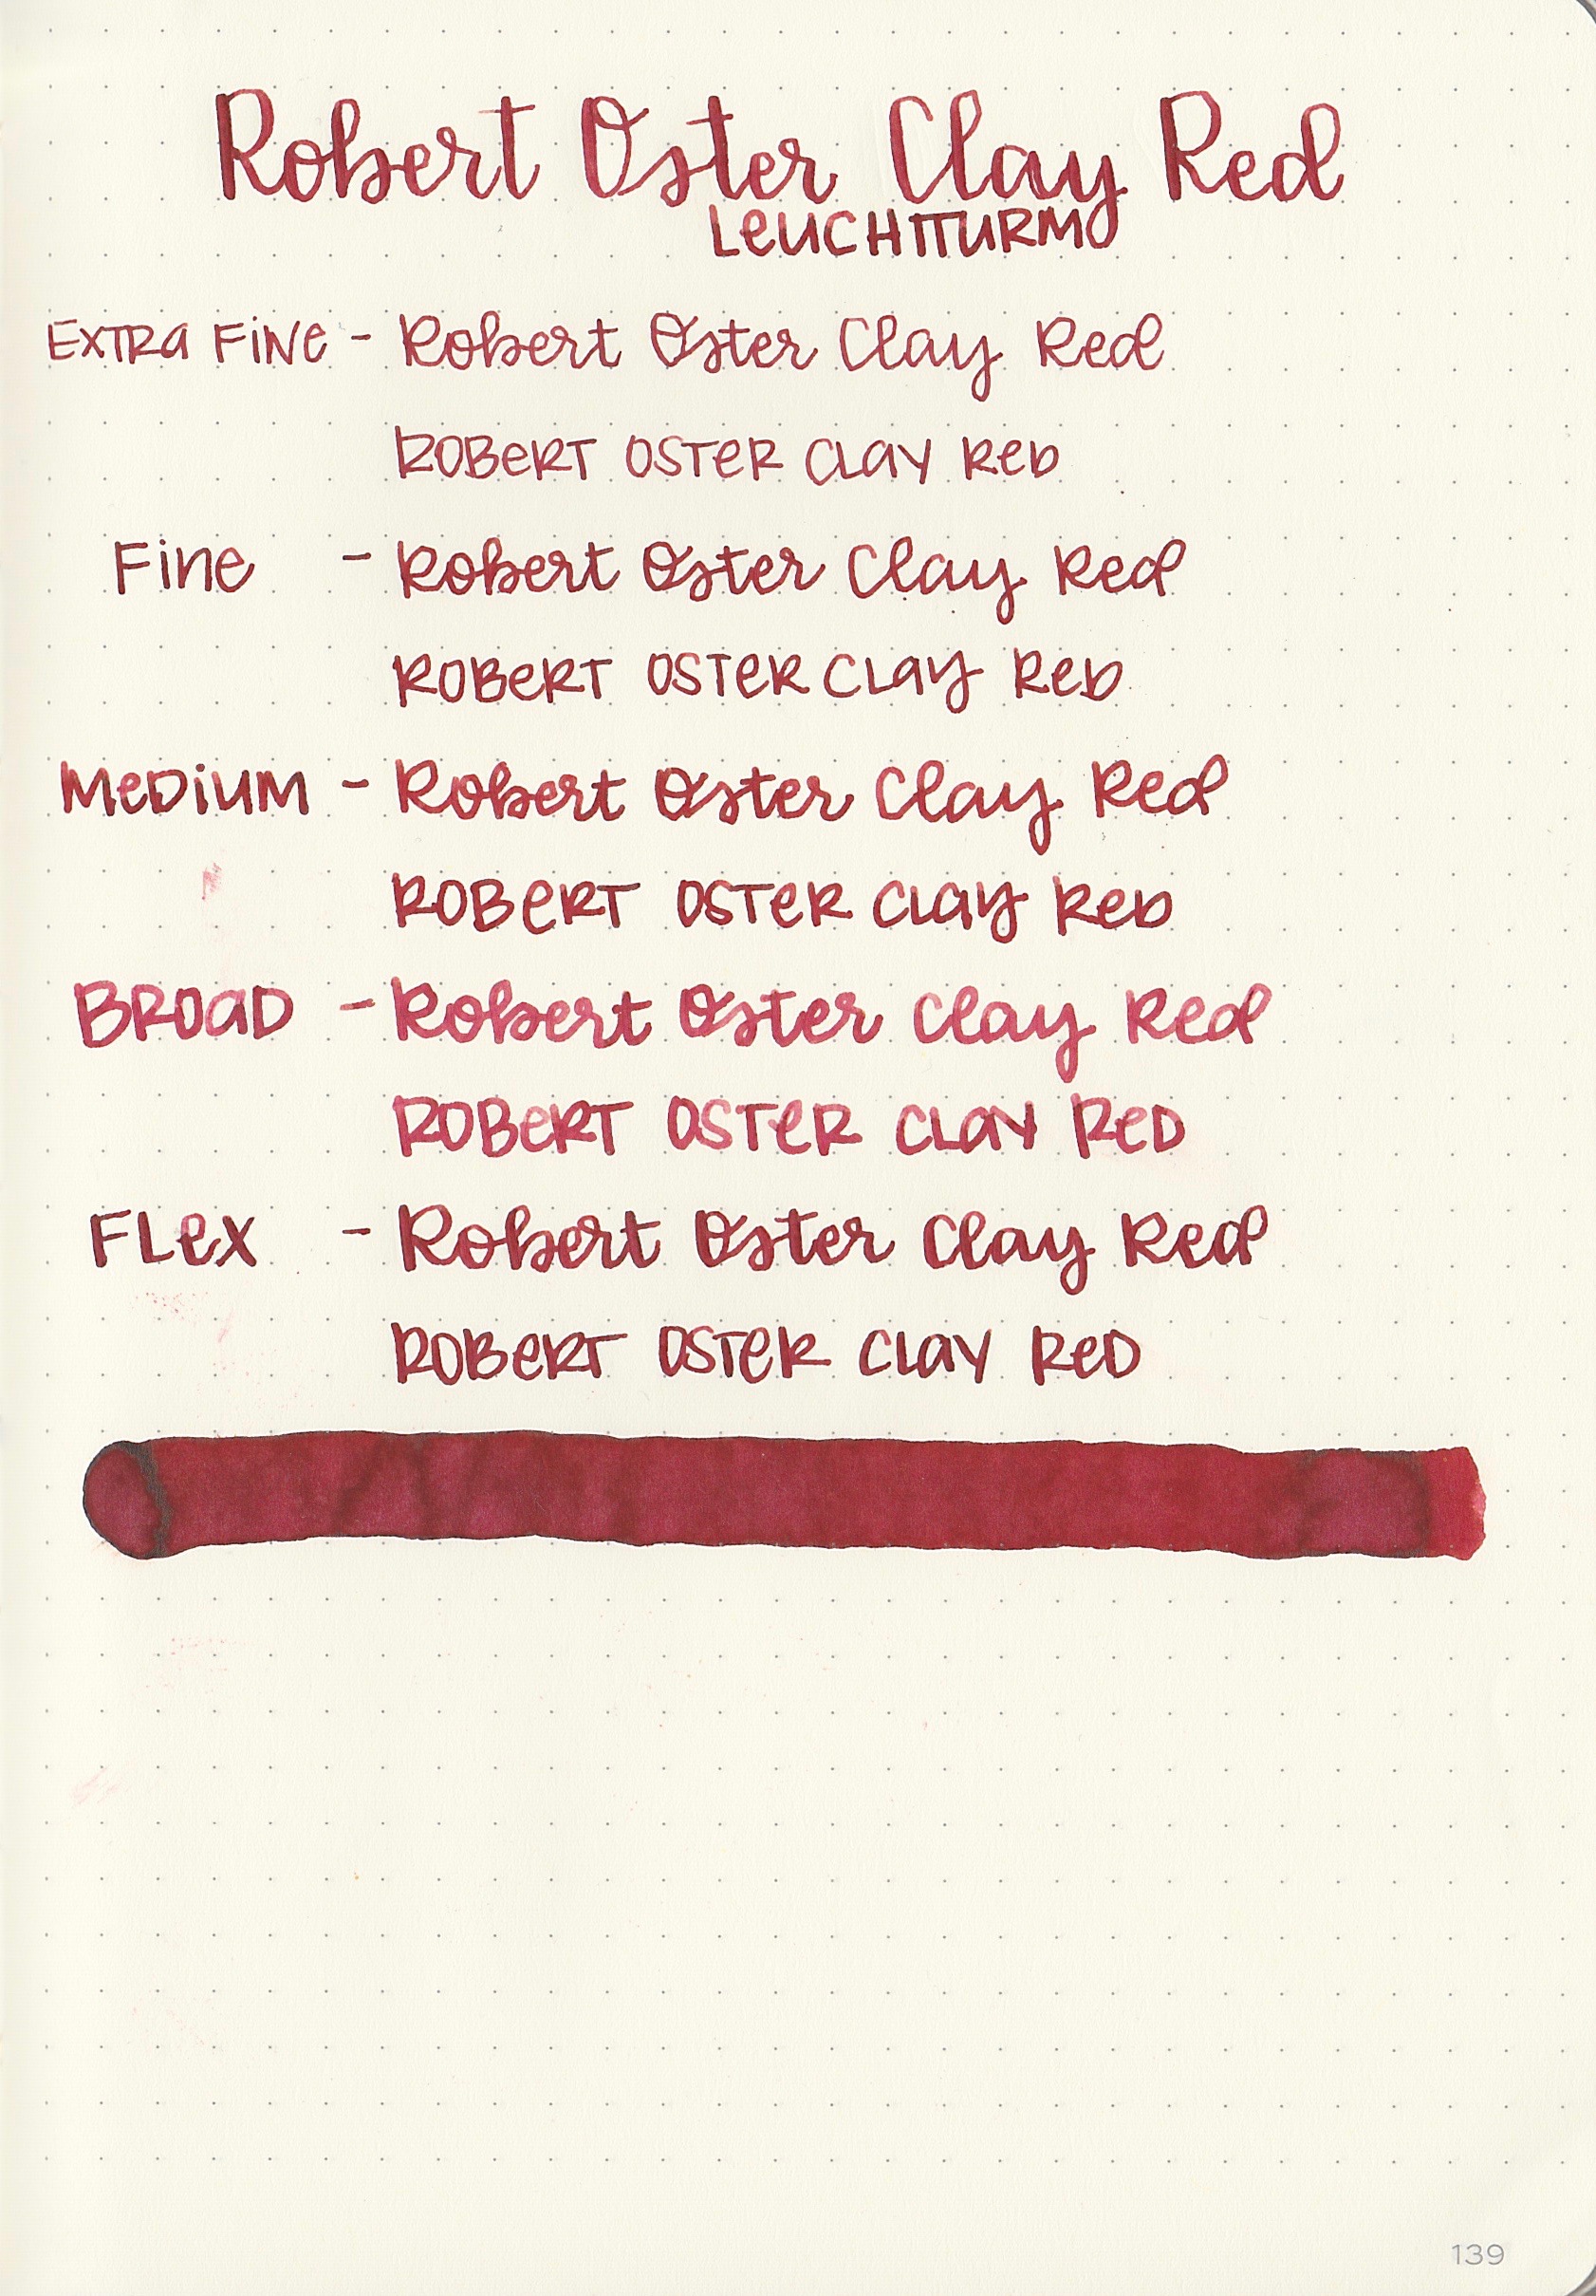 Robert Oster Clay Red
LeUCHTTURM
EXTRa FiNe - Robert Oster Clay Red
ROBeRT OSTeR CLay ReD
Fine - Robert Oster Clay Red
ROBeRT OSTeR CLay ReD
MeDiUM - Robert Oster Clay Red
ROBeRT OSTeR CLay ReD
BROaD - Robert Oster Clay Red
ROBeRT OSTeR CLaY ReD
FLex - Robert Oster Clay Red
ROBeRT OSTeR CLaY ReD
139